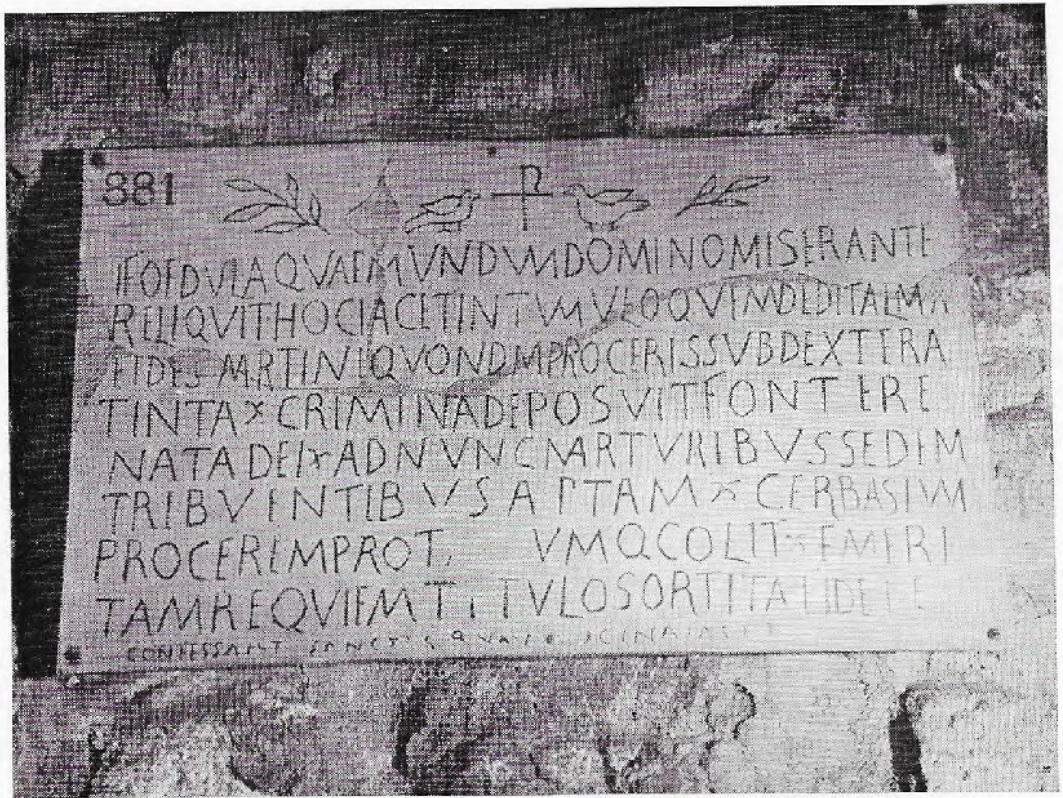 881
IFOEDVLA QVAE MVNDVM DOMINO MISERANTE
RELIQVIT HOC IACET IN TVMVLO QVEM DEDIT ALMA
FIDES MARTINI QVONDM PROCERIS SVB DEXTERA
TINTA CRIMINA DEPOSVIT FONTE RE
NATA DEI AD NVNC MARTVRIBVS SEDEM
TRIBVENTIBVS APTAM CERBASIVM
PROCEREM PROT VMQ COLIT EMERI
TAM REQVIEM TITVLO SORTITA FIDELE
CONFESSA EST SANCTIS